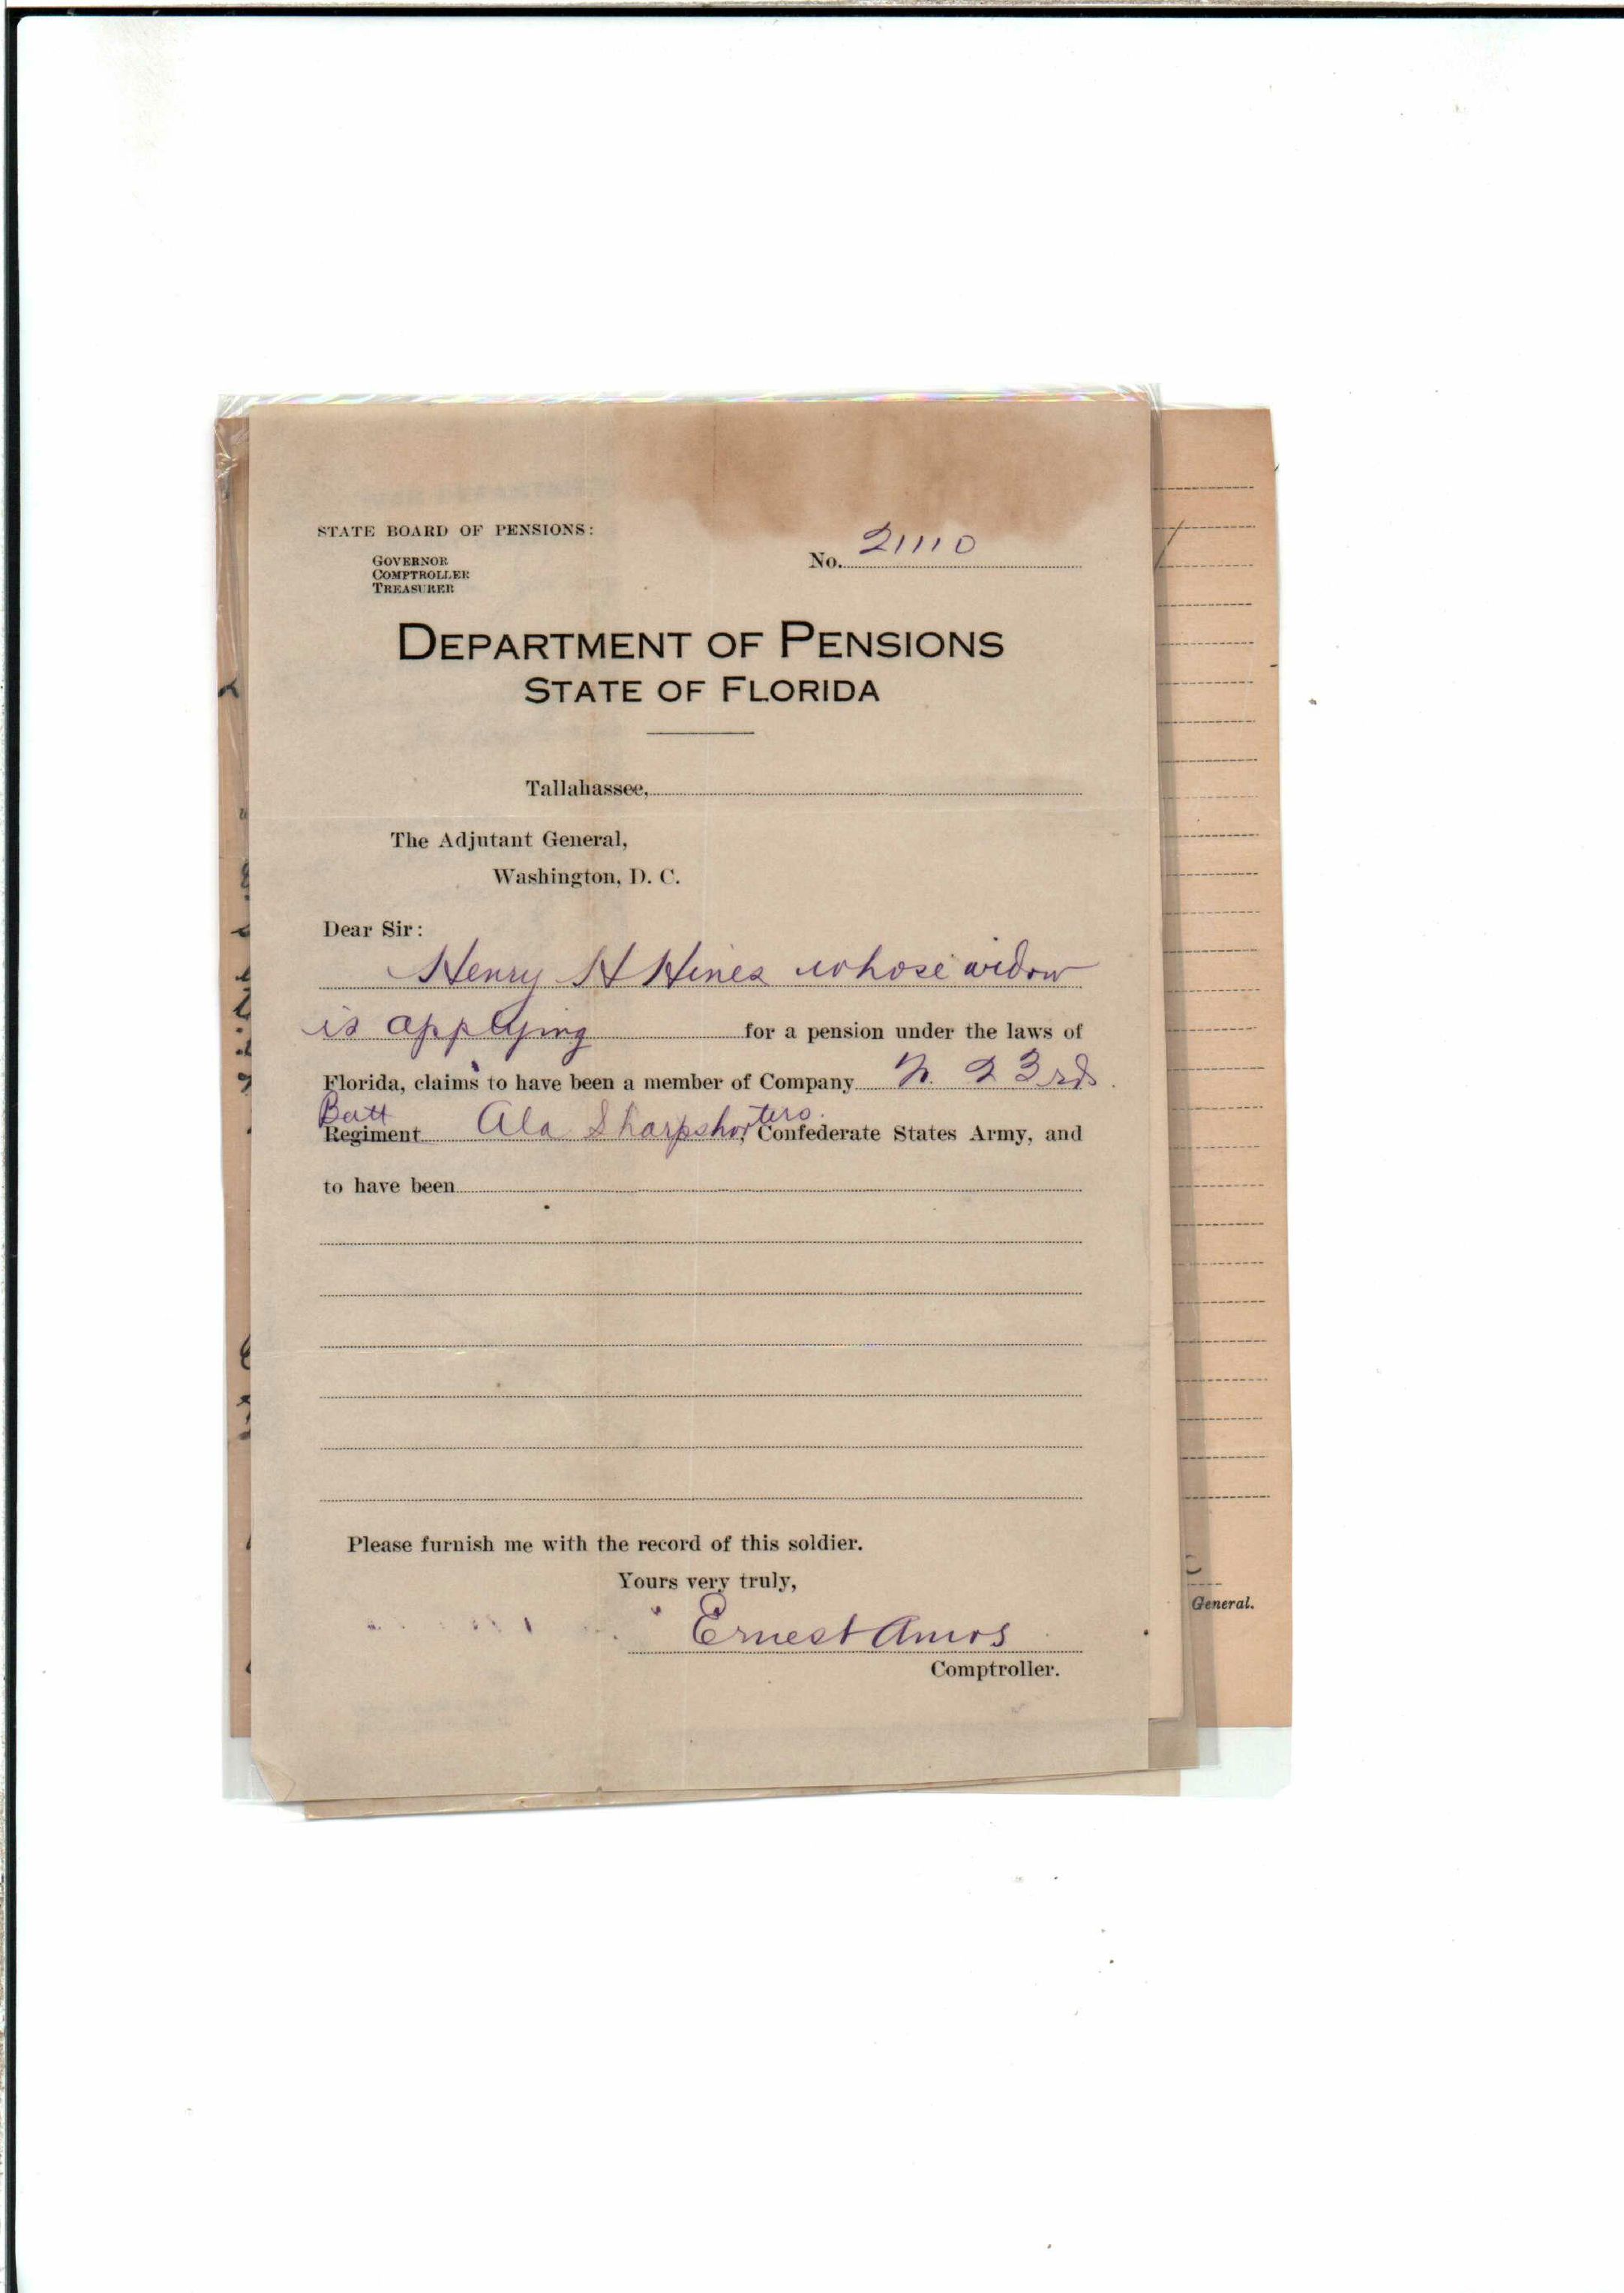 STATE BOARD OF PENSIONS:
GOVERNOR
COMPTROLLER
TREASURER
No. 21110
DEPARTMENT OF PENSIONS
STATE OF FLORIDA
Tallahassee,
The Adjutant General,
Washington, D. C.
Dear Sir:
Henry H Hines whose widow
is applying for a pension under the laws of
Florida, claims to have been a member of Company 23rd
Batt
Regiment Ala Sharpshooters, Confederate States Army, and
to have been
Please furnish me with the record of this soldier.
Yours very truly,
Ernest Amos
Comptroller.
General.